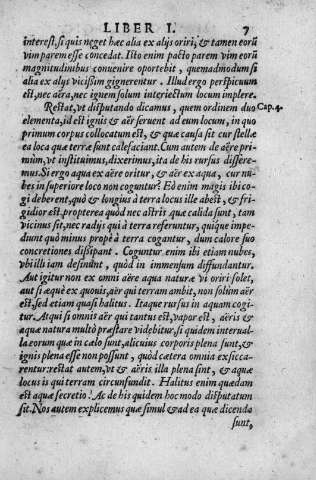 LIBER I. 7
interest, si quis neget hæc alia ex alijs oriri, & tamen eorū
vim parem esse concedat. Isto enim pacto parem vim eorū
magnitudinibus conuenire oportebit, quemadmodum si
alia ex alijs vicissim gignerentur. Illud ergo perspicuum
est, nec aëra, nec ignem solum interiectum locum implere.
Restat, vt disputando dicamus, quem ordinem duo Cap. 4.
elementa, id est ignis & aër seruent ad eum locum, in quo
primum corpus collocatum est, & quæ causa sit cur stellæ
ea loca quæ terræ sunt calefaciant. Cum autem de aëre pri-
mùm, vt instituimus, dixerimus, ita de his rursus dissere-
mus. Si ergo aqua ex aëre oritur, & aër ex aqua, cur nu-
bes in superiore loco non coguntur? Eò enim magis ibi co-
gi deberent, quò & longiùs à terra locus ille abest, & fri-
gidior est. propterea quòd nec astris quæ calida sunt, tam
vicinus sit, nec radijs qui à terra referuntur, quique impe-
diunt quò minus propè à terra cogantur, dum calore suo
concretiones dissipant. Coguntur enim ibi etiam nubes,
vbi illi iam desinunt, quòd in immensum diffundantur.
Aut igitur non ex omni aëre aqua naturæ vi oriri solet,
aut si æquè ex quouis, aër qui terram ambit, non solùm aër
est, sed etiam quasi halitus. Itaque rursus in aquam cogi-
tur. Atqui si omnis aër qui tantus est, vapor est, aëris &
aquæ natura multò præstare videbitur, si quidem interual-
la eorum quæ in cælo sunt, alicuius corporis plena sunt, &
ignis plena esse non possunt, quòd cætera omnia exsicca-
rentur: restat autem, vt & aëris illa plena sint, & aquæ
locus is qui terram circunfundit. Halitus enim quædam
est aquæ secretio. Ac de his quidem hoc modo disputatum
sit. Nos autem explicemus quæ simul & ad ea quæ dicenda
sunt,